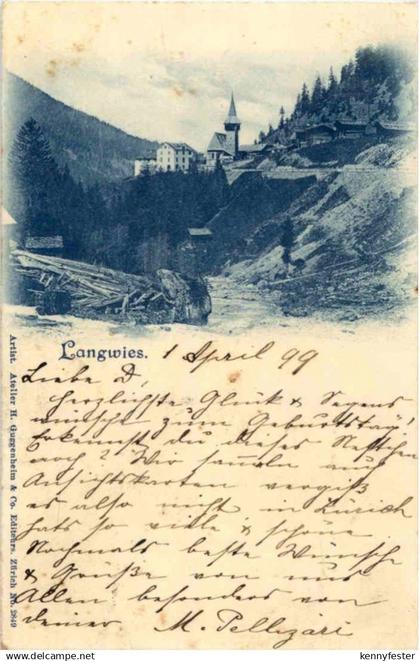 Langwies. 1 April 99
Liebe D,
herzlichste Glück & Segens
wünsche zum Geburtstag!
Erkennst du dieses Nestchen
noch? Wir sammeln auch
Ansichtskarten vergiß
es also nicht in Zürich
hats so viele & schöne
Nochmals beste Wünsche
& Grüße von uns
Allen besonders von
deiner M. Pellizari
Artist. Atelier H. Guggenheim & Co. Editeurs, Zürich No. 2849
www.kennyfester.com